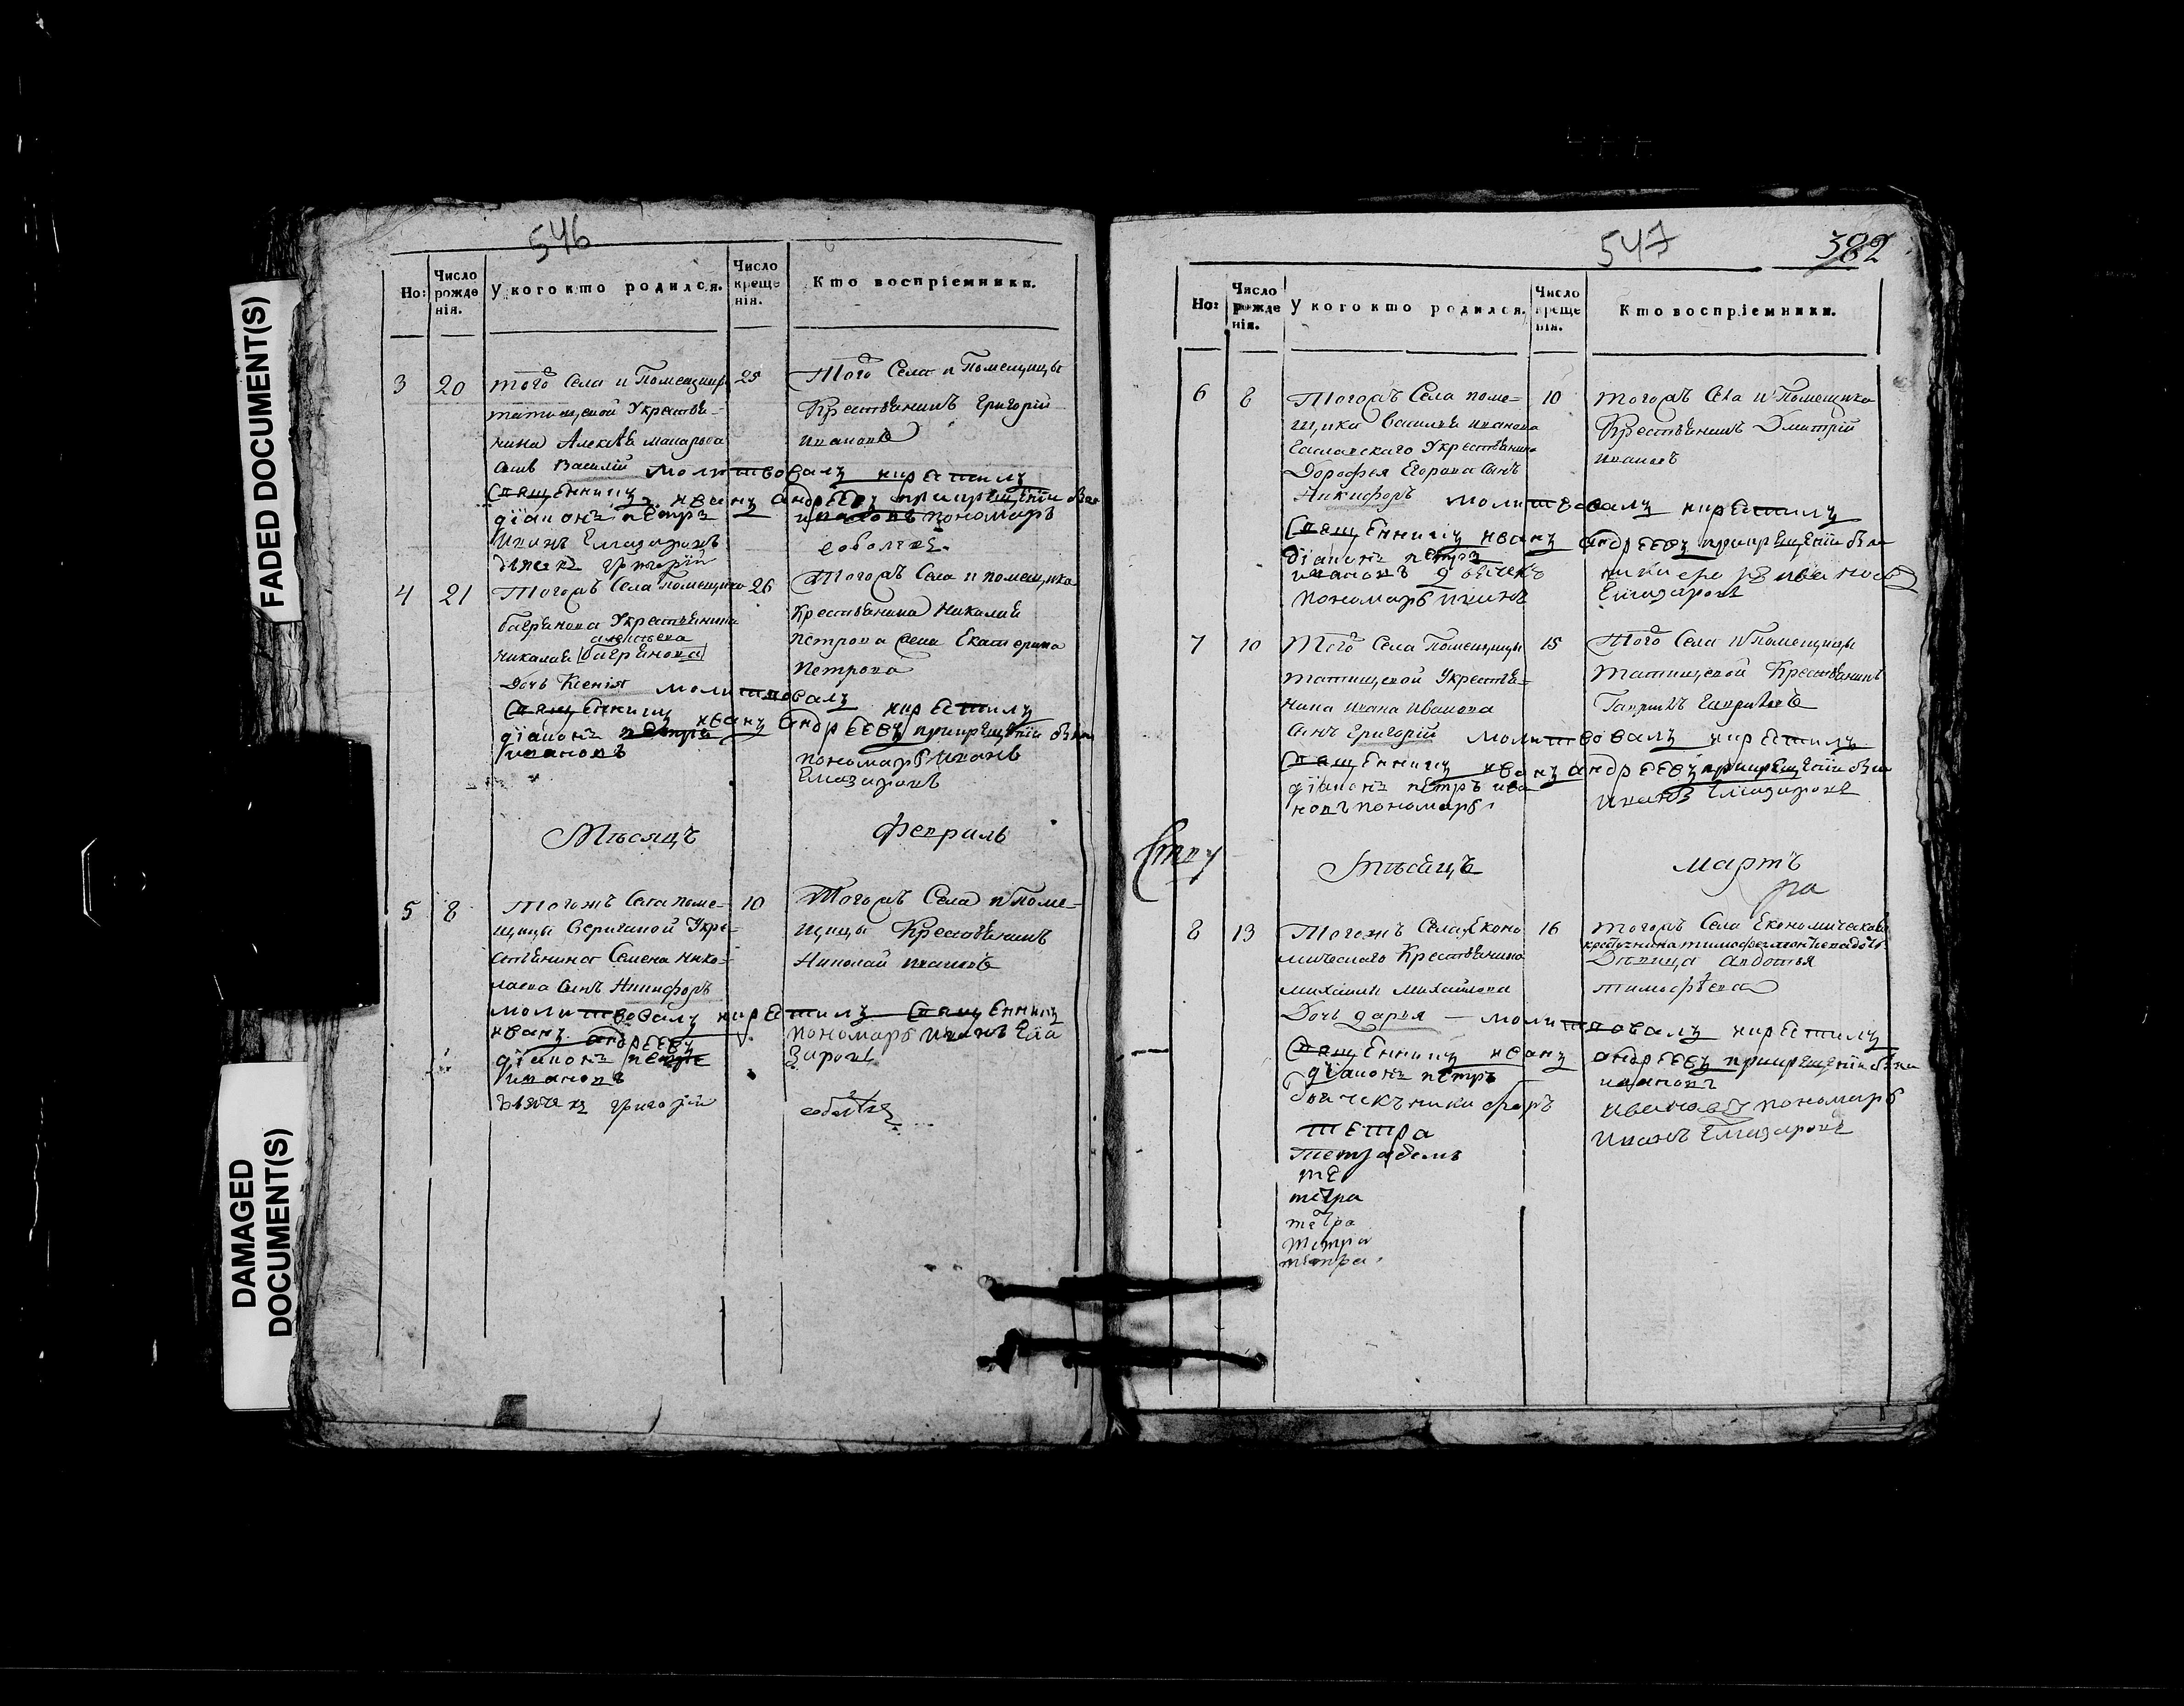 FADED DOCUMENT(S)
DAMAGED
DOCUMENT(S)
546
Но:
Число
рожде
нія.
У кого кто родился.
Число
креще
нія.
Кто воспріемники.
3 20
того Села и Помещицы
татищевой Укрестья-
нина Алексѣя макарова
сынъ Василій
молитвовалъ икрестилъ
Священникъ иванъ андреевъ прикрещеніи были
діаконъ петръ
Иванъ Елиазаровъ
дьячекъ григорій
25
Того Села и Помещицы
Крестьянинъ Григорій
ивановъ
ивановъ пономарь
соболевъ.
4 21
Тогожъ Села Помещика
Укрестьянина
алексѣева
Николая
Дочь Ксенія
молитвовалъ
икрестилъ
Священникъ иванъ андреевъ прикрещеніи были
діаконъ петръ
ивановъ
26
Тогожъ Села и помещика
Крестьянина Николая
петрова Екатерина
петрова
пономарь Иванъ
Елиазаровъ
Мѣсяцъ
Февриль
5 8
Тогожъ Села поме-
щицы Укре-
стьянина Семена Нико-
лаева сынъ Никифоръ
молитвовалъ икрестилъ Священникъ
иванъ андреевъ
діаконъ петръ
ивановъ
дьячекъ григорій
10
Тогожъ Села и Поме-
щицы Крестьянинъ
Николай ивановъ
пономарь Иванъ Елиа
заровъ
соболевъ
547
382
Но:
Число
рожде
нія.
У кого кто родился.
Число
креще
нія.
Кто воспріемники.
6 8
Тогожъ Села поме-
щика Василья иванова
Укрестьянина
Дорофея Егорова сынъ
Никифоръ
молитвовалъ икрестилъ
Священникъ иванъ андреевъ прикрещеніи были
діаконъ петръ
ивановъ дьячекъ
пономарь иванъ
10
тогожъ Села и Помещика
Крестьянинъ Дмитрій
ивановъ
никифоръ ивановъ
Елиазаровъ
7 10
Того Села Помещицы
татищевой Укрестья-
нина ивана Иванова
сынъ Григорій
молитвовалъ икрестилъ
Священникъ иванъ андреевъ прикрещеніи были
діаконъ петръ ива
новъ пономарь
15
Того Села и Помещицы
татищевой Крестьянинъ
Гаврилъ Гавриловъ
иванъ Елиазаровъ
Мѣсяцъ
мартъ
ра
8 13
Тогожъ Села Еконо
мическаго Крестьянина
михаила михайлова
Дочь дарья
молитвовалъ икрестилъ
Священникъ иванъ андреевъ прикрещеніи были
діаконъ петръ
дьячекъ никифоръ
16
тогожъ Села Економическаго
Девица авдотья
тимофѣева
ивановъ
ивановъ пономарь
иванъ Елиазаровъ
тетра
тетрадемъ
те
тетра
тетра
тетра
тетра